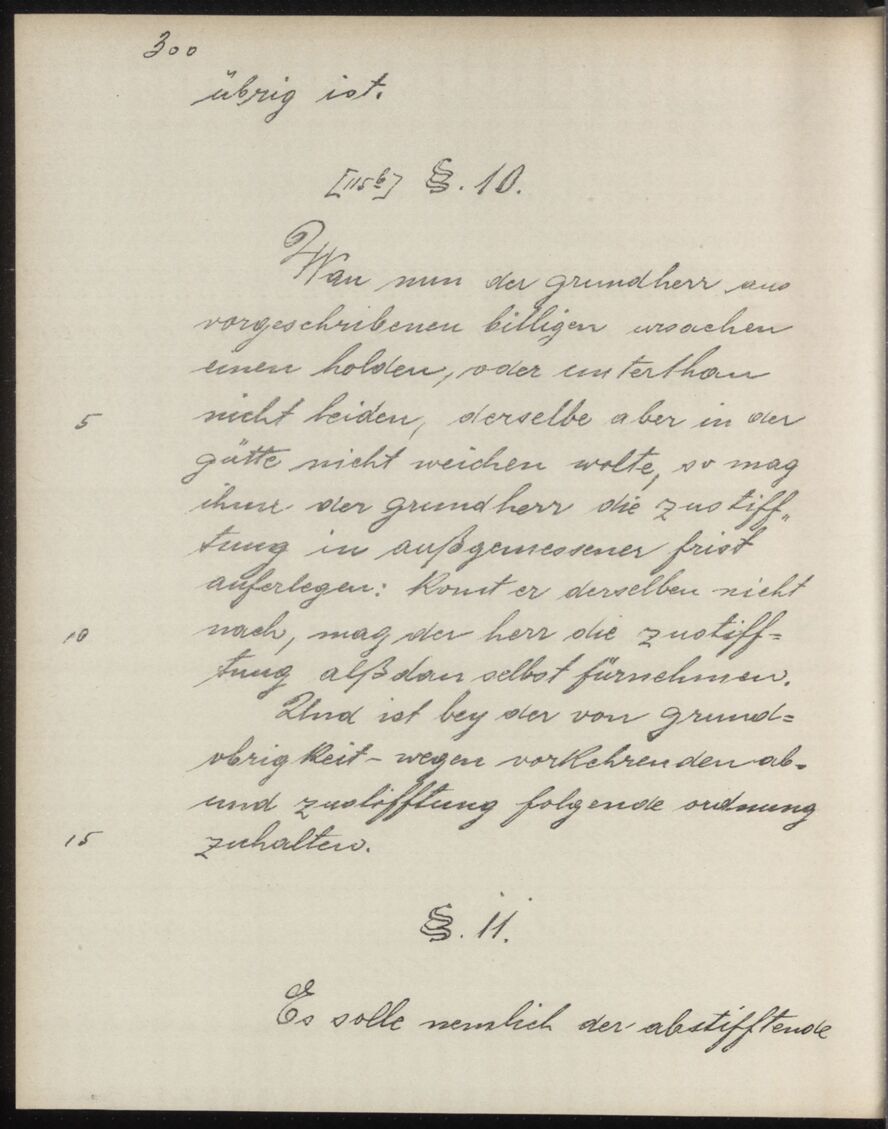 300
übrig ist.
[115b] §. 10.
Wan nun der grundherr aus
vorgeschribenen billigen ursachen
einen holden, oder unterthan
5 nicht leiden, derselbe aber in der
gütte nicht weichen wolte, so mag
ihme der grundherr die zustiff„
tung in außgemessener frist
auferlegen: Komt er derselben nicht
10 nach, mag der herr die zustiff=
tung alßdan selbst fürnehmen.
Und ist bey der von grund=
obrigkeit-wegen vorkehrenden ab-
und zustifftung folgende ordnung
15 zuhalten.
§. 11.
Es solle nemlich der abstifftende